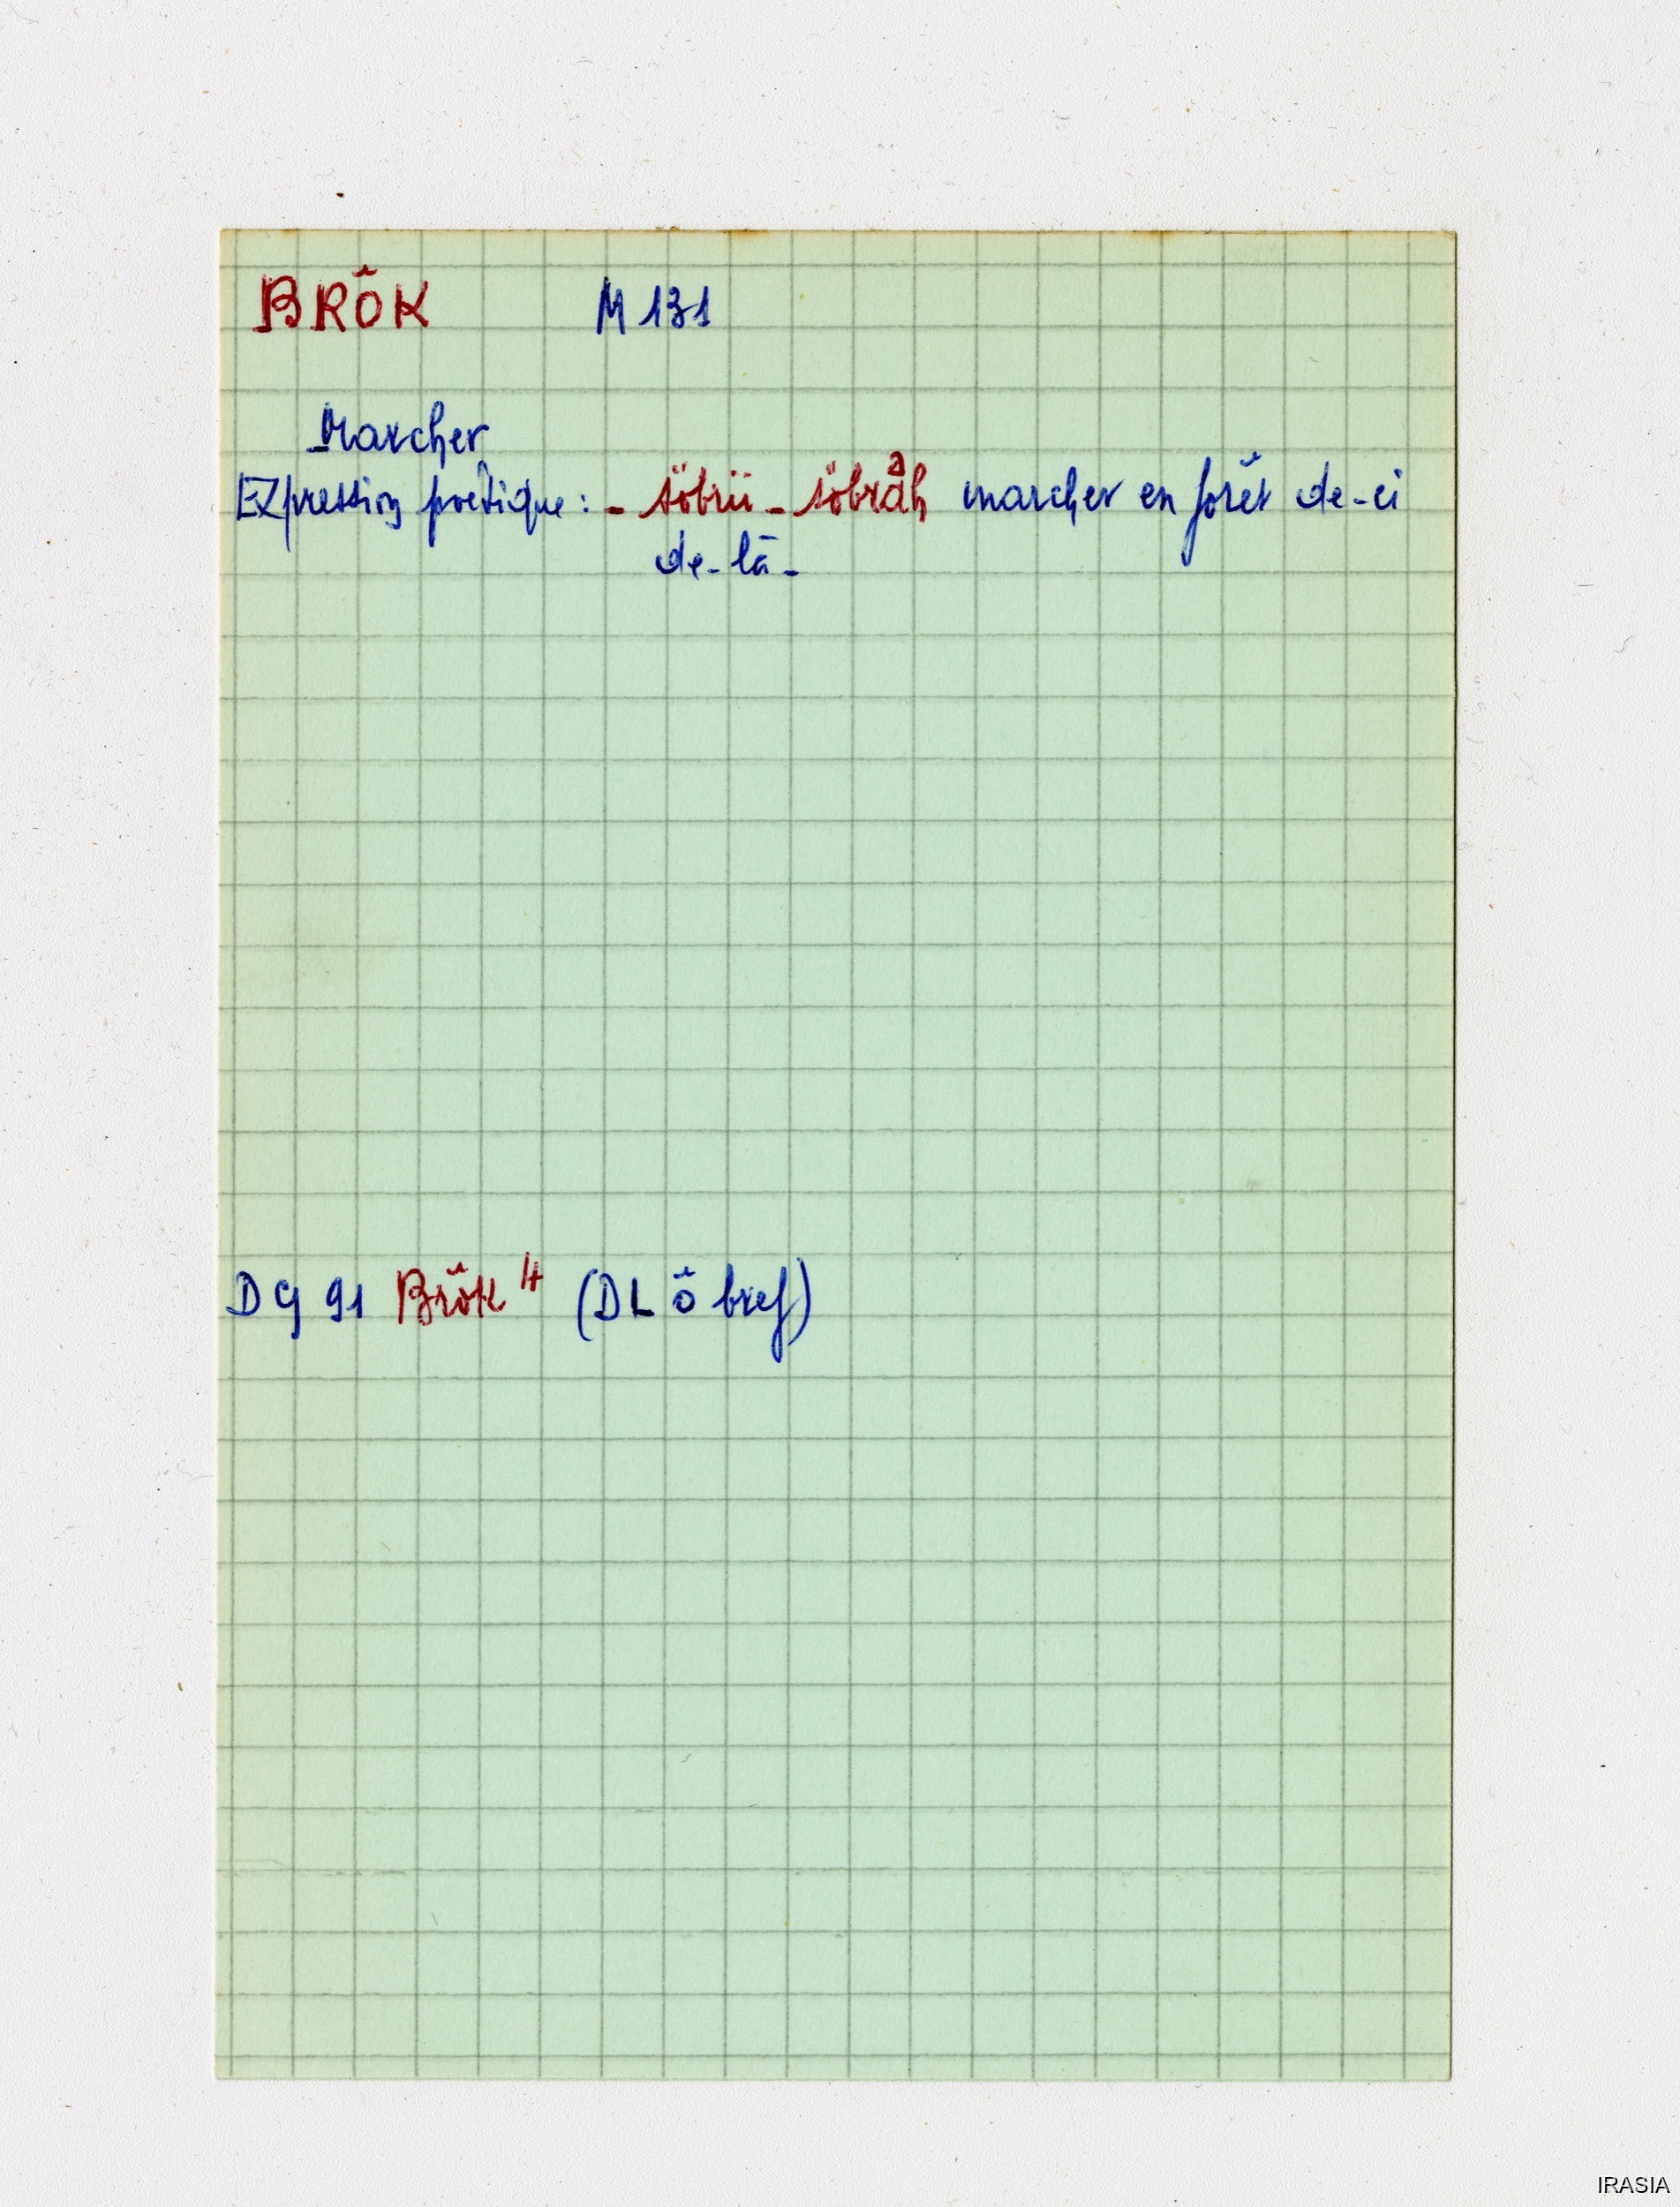 BRÖ̆K M 131
Marcher
EXpression poétique : - söbrii - söbrah marcher en forêt de-ci
de-là -
DG 91 Brö̆k 4 (DL ö̆ bref)
IRASIA